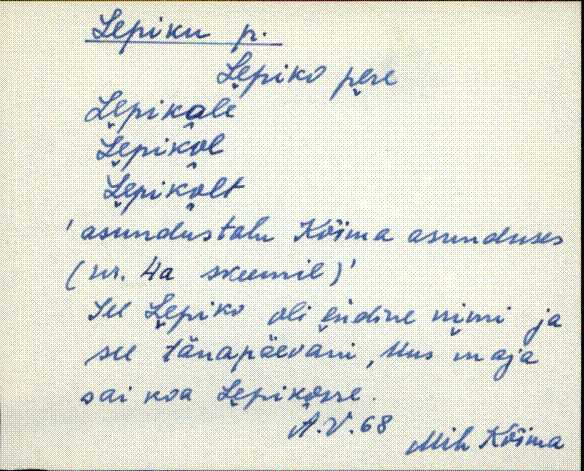 Lepiku p.
Lepiko pere
Lepikale
Lepikol
Lepikolt
'asundustalu Kõima asunduses
(nr. 4a skeemil)'
See Lepiko oli endine nimi ja
see tänapäevani, Uus maja
sai koa Lepikosse.
A.V. 68
Mih Kõima